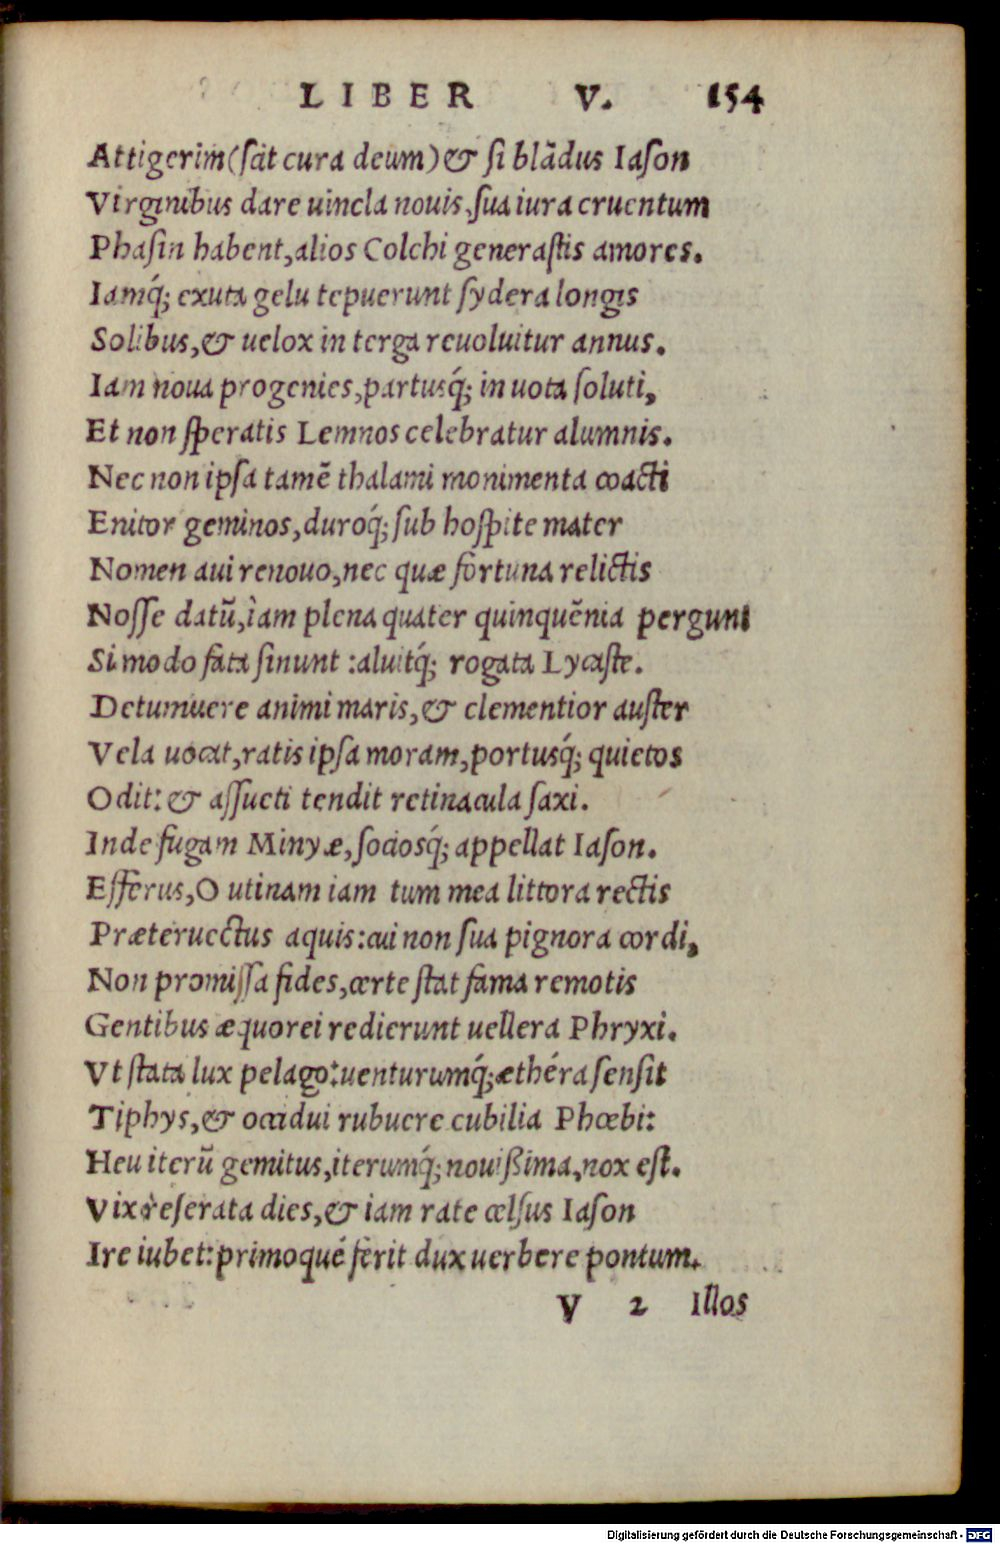 LIBER V. 154
Attigerim (scit cura deum) & si blādus Iason
Virginibus dare uincla nouis, sua iura cruentum
Phasin habent, alios Colchi generastis amores.
Iamq́; exuta gelu tepuerunt sydera longis
Solibus, & uelox in terga reuoluitur annus.
Iam noua progenies, partusq́; in uota soluti,
Et non speratis Lemnos celebratur alumnis.
Nec non ipsa tamē thalami monimenta coacti
Enitor geminos, duroq́; sub hospite mater
Nomen aui renouo, nec quæ fortuna relictis
Nosse datū, iam plena quater quinquēnia pergunt
Si modo fata sinunt: aluitq́; rogata Lycaste.
Detumuere animi maris, & clementior auster
Vela uocat, ratis ipsa moram, portusq́; quietos
Odit: & assueti tendit retinacula saxi.
Inde fugam Minyæ, sociosq́; appellat Iason.
Efferus, O utinam iam tum mea littora rectis
Præteruectus aquis: cui non sua pignora cordi,
Non promissa fides, certe stat fama remotis
Gentibus æquorei redierunt uellera Phryxi.
Vt stata lux pelago: uenturumq́; æthéra sensit
Tiphys, & occidui rubuere cubilia Phœbi:
Heu iterū gemitus, iterumq́; nouißima, nox est.
Vix reserata dies, & iam rate celsus Iason
Ire iubet: primoqué ferit dux uerbere pontum.
V 2 Illos
Digitalisierung gefördert durch die Deutsche Forschungsgemeinschaft - DFG